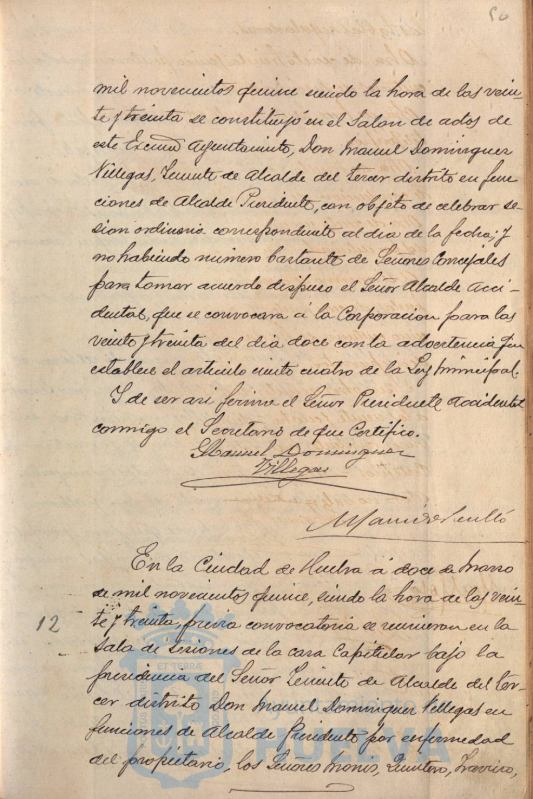 50
mil novecientos quince siendo la hora de las vein-
te y treinta se constituyó en el Salon de actos de
este Excmo Ayuntamiento, Don Manuel Dominguez
Villegas, Teniente de Alcalde del tercer distrito en fun-
ciones de Alcalde Presidente, con objeto de celebrar se-
sion ordinaria correspondiente al dia de la fecha; y
no habiendo numero bastante de Señores Concejales
para tomar acuerdo dispuso el Señor Alcalde Acci-
dental, que se convocara á la Corporacion para las
veinte y treinta del dia doce con la advertencia que
establece el articulo ciento cuatro de la Ley Municipal.
Y de ser asi firma el Señor Presidente accidental
conmigo el Secretario de que Certifico.
Manuel Dominguez
Villegas
En la Ciudad de Huelva á doce de Marzo
de mil novecientos quince, siendo la hora de las vein-
12
te y treinta, previa convocatoria se reunieron en la
Sala de sesiones de la casa Capitular bajo la
presidencia del Señor Teniente de Alcalde del ter-
cer distrito Don Manuel Dominguez Villegas en
funciones de Alcalde Presidente por enfermedad
del propietario, los Señores Monis, Quintero,
ET TERRÆ
HUELVA